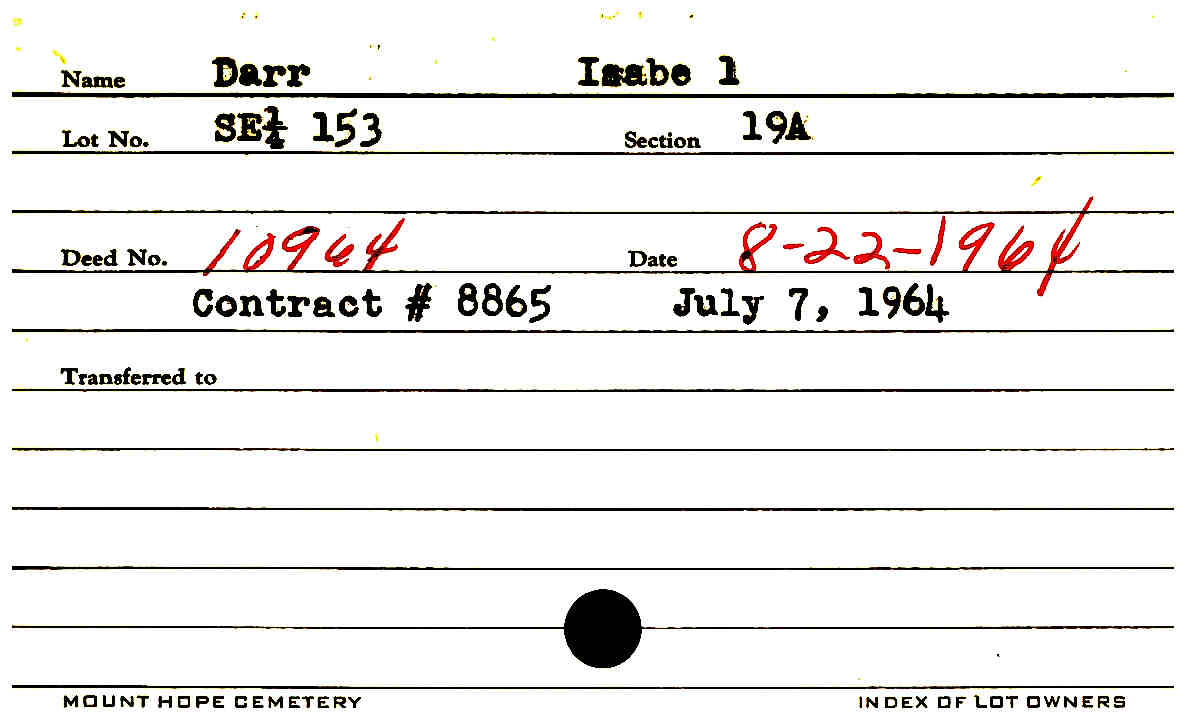 Name Darr Isabe l
Lot No. SE¼ 153 Section 19A
Deed No. 10964 Date 8-22-1964
Contract # 8865 July 7, 1964
Transferred to
MOUNT HOPE CEMETERY INDEX OF LOT OWNERS